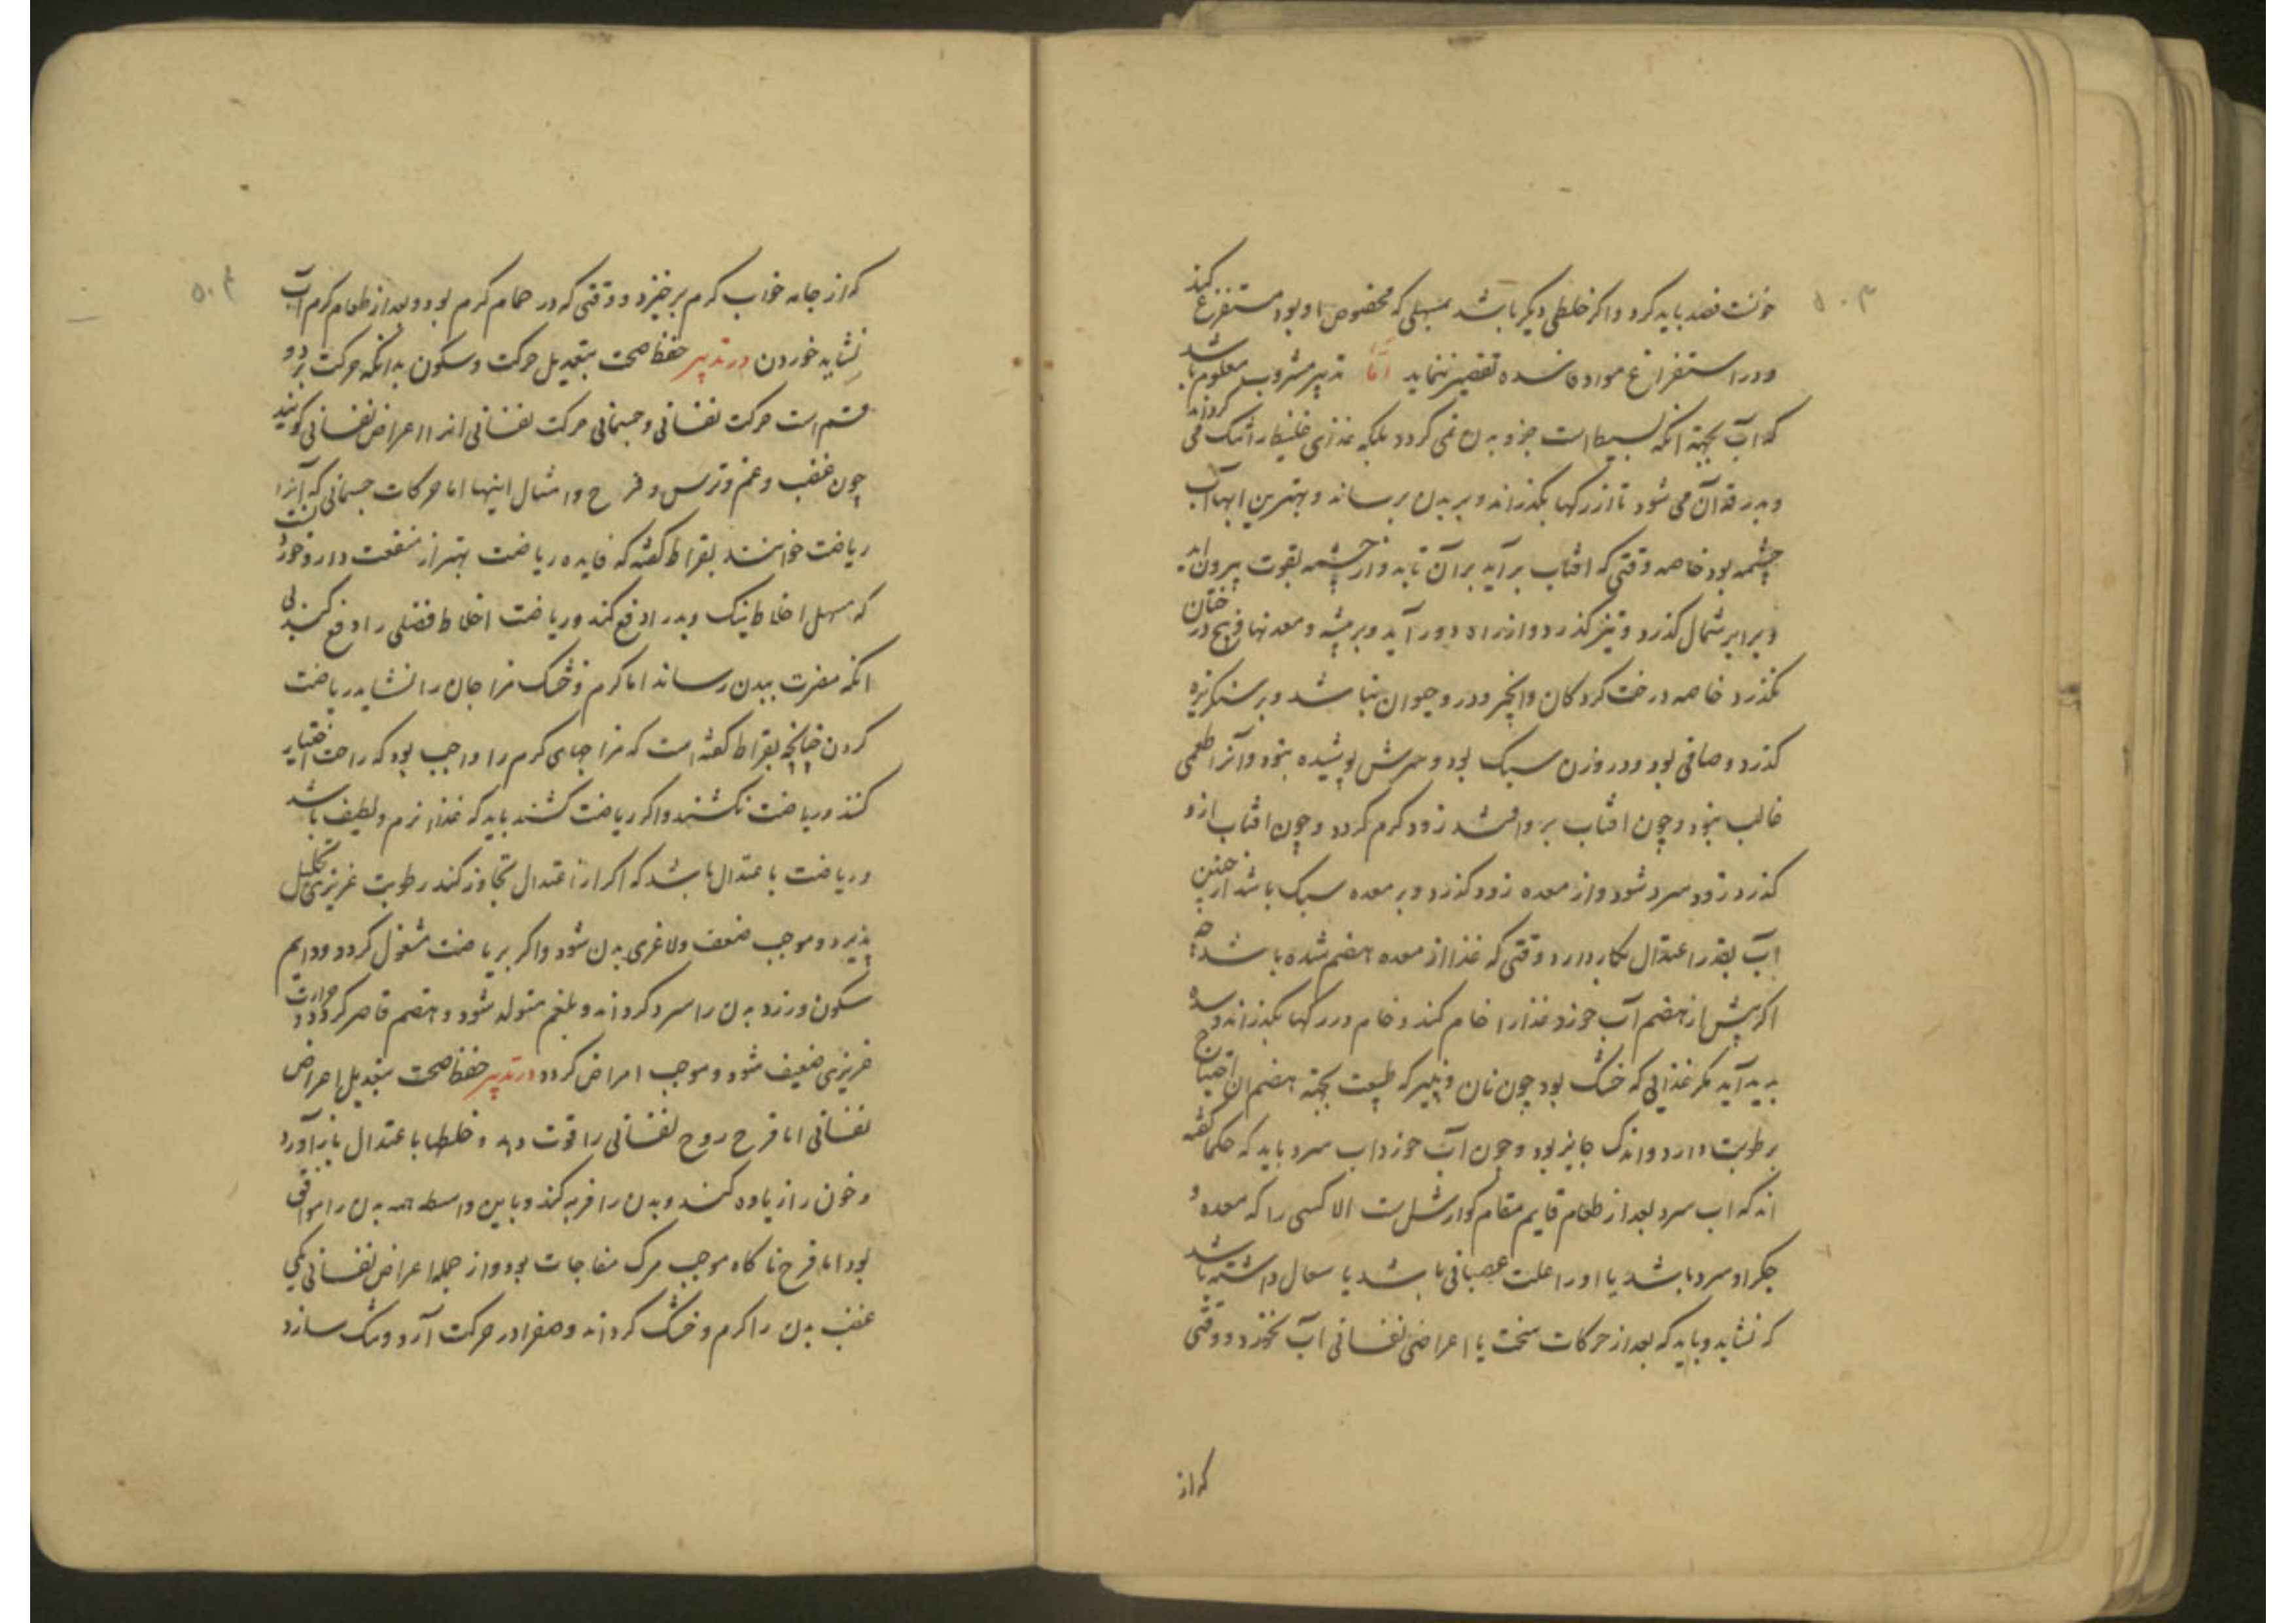 ۵۰۳
خونست فصد باید کرد و اکر خلطی دیکر باشد بمسهلی که مخصوص او بود مستفرغ کند
و در استفراغ مواد فاسده تقصیر ننماید اما تدبیر مشروب معلوم باشد
که آب بجهة انکه بسیط است جزو بدن نمی کردد بلکه غذای غلیظ را تنک می کرداند
و بدرقه آن می شود تا از رکها بکذراند و ببدن برساند و بهترین ابها آب
چشمه بود خاصه وقتی که افتاب برآید بر آن تابد و از چشمه بقوت بیرون اید
و برابر شمال کذرد و تیز کذرد و از راه دور آید و بر بیشه و معدنها و بیخ درختان
نکذرد خاصه درخت کردکان و انجیر و در و حیوان نباشد و بر سنکریزه
کذرد و صافی بود و در وزن سبک بود و سرش پوشیده نبود و آنرا طعمی
غالب نبود و چون افتاب بر وافتد زود کرم کردد و چون افتاب ازو
کذرد زود سرد شود و از معده زود کذرد و بر معده سبک باشد از چنین
اب بقدر اعتدال بکار دارد وقتی که غذا از معده هضم شده باشد چه
اکر پیش از هضم آب خورد غذا را خام کند و خام در رکها بکذراند و سده
پدید آید مکر غذایی که خشک بود چون نان و پنیر که طبیعت بجهة هضم ان احتیاج
برطوبت دارد و اندک جایز بود و چون آب خورد اب سرد باید که حکما کفته
اند که اب سرد بعد از طعام قایم مقام کوارش است الا کسی را که معده و
جکر او سرد باشد یا او را علت عصبانی باشد یا سعال داشته باشد
که نشاید و باید که بعد از حرکات سخت یا اعراض نفسانی آب نخورد و وقتی
که از
۵۰۴
که از جامه خواب کرم برخیزد و وقتی که در حمام کرم بود و بعد از طعام کرم آب
نشاید خوردن در تدبیر حفظ صحت بتعدیل حرکت و سکون بدانکه حرکت بر دو
قسم است حرکت نفسانی و جسمانی حرکت نفسانی انرا اعراض نفسانی کویند
چون غضب و غم و ترس و فرح و امثال اینها اما حرکات جسمانی که آنرا
ریاضت خوانند بقراط کفته که فایده ریاضت بهتر از منفعت دارو خوردنست
که مسهل اخلاط نیک و بد را دفع کند و ریاضت اخلاط فضلی را دفع کند بی
انکه مضرت ببدن رساند اما کرم و خشک مزاجان را نشاید ریاضت
کردن چنانچه بقراط کفته است که مزاجهای کرم را واجب بود که راحت اختیار
کنند و ریاضت نکشند و اکر ریاضت کشند باید که غذا نرم و لطیف باشد
و ریاضت باعتدال باشد که اکر از اعتدال تجاوز کند رطوبت غریزی تحلیل
پذیرد و موجب ضعف و لاغری بدن شود و اکر بریاضت مشغول کردد و دایم
سکون ورزد بدن را سرد کرداند و بلغم متولد شود و هضم قاصر کردد و حرارت
غریزی ضعیف شود و موجب امراض کردد در تدبیر حفظ صحت بتعدیل اعراض
نفسانی اما فرح روح نفسانی را قوت دهد و خلطها باعتدال باز آورد
و خون را زیاده کند و بدن را فربه کند و باین واسطه همه بدن را موافق
بود اما فرح ناکاه موجب مرک مفاجات بود و از جمله اعراض نفسانی یکی
غضب بدن را کرم و خشک کرداند و صفرا در حرکت آرد و تنک سازد